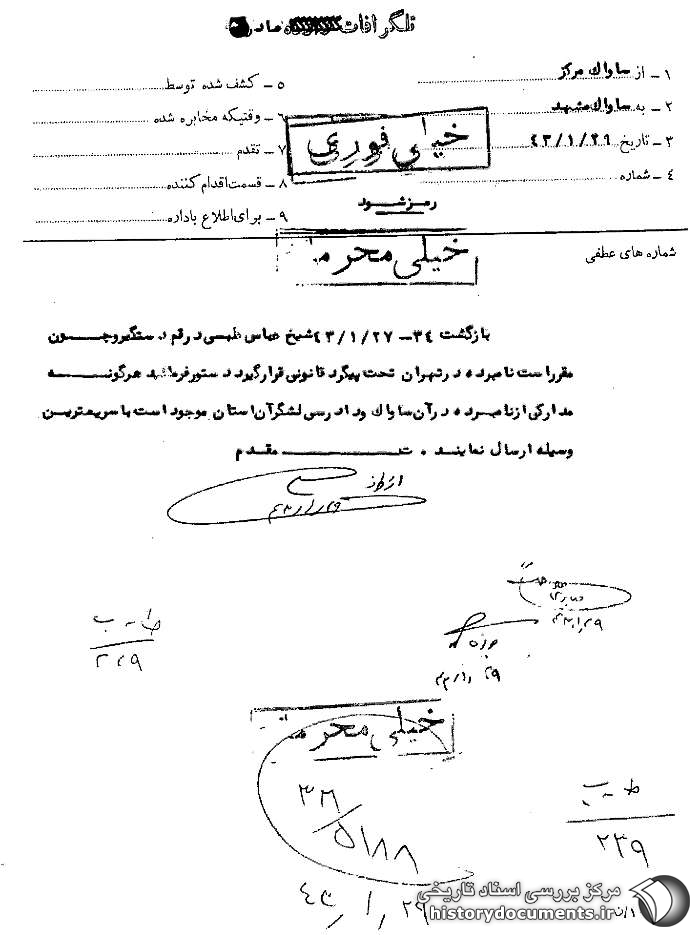 تلگرافات صادره
۱ـ از ساواك مركز
۲ـ به ساواك مشهد
۳ـ تاریخ ۴۳/۱/۲۹
۴ـ شماره
۵ـ کشف شده توسط
۶ـ وقتیکه مخابره شده
۷ـ تقدم
۸ـ قسمت اقدام کننده
۹ـ برای اطلاع باداره
خیلی فوری
رمز شود
خیلی محرمانه
شماره های عطفی
بازگشت ۳۴ـ ۴۳/۱/۲۷ شیخ عباس طبسی در قم دستگیر و چون
مقرر است نامبرده در تهران تحت پیگرد قانونی قرار گیرد دستور فرمائید هرگونه
مدارکی از نامبرده در آن ساواك و دادرسی لشگر آن استان موجود است با سریعترین
وسیله ارسال نمایند . ت مقدم
۴۳/۱/۲۹
ط ـ ب
۲۳۹
خیلی محرمانه
۵۱۸۸
۴۳/۱/۲۹
ط ـ ب
۲۳۹
مرکز بررسی اسناد تاریخی
historydocuments.ir